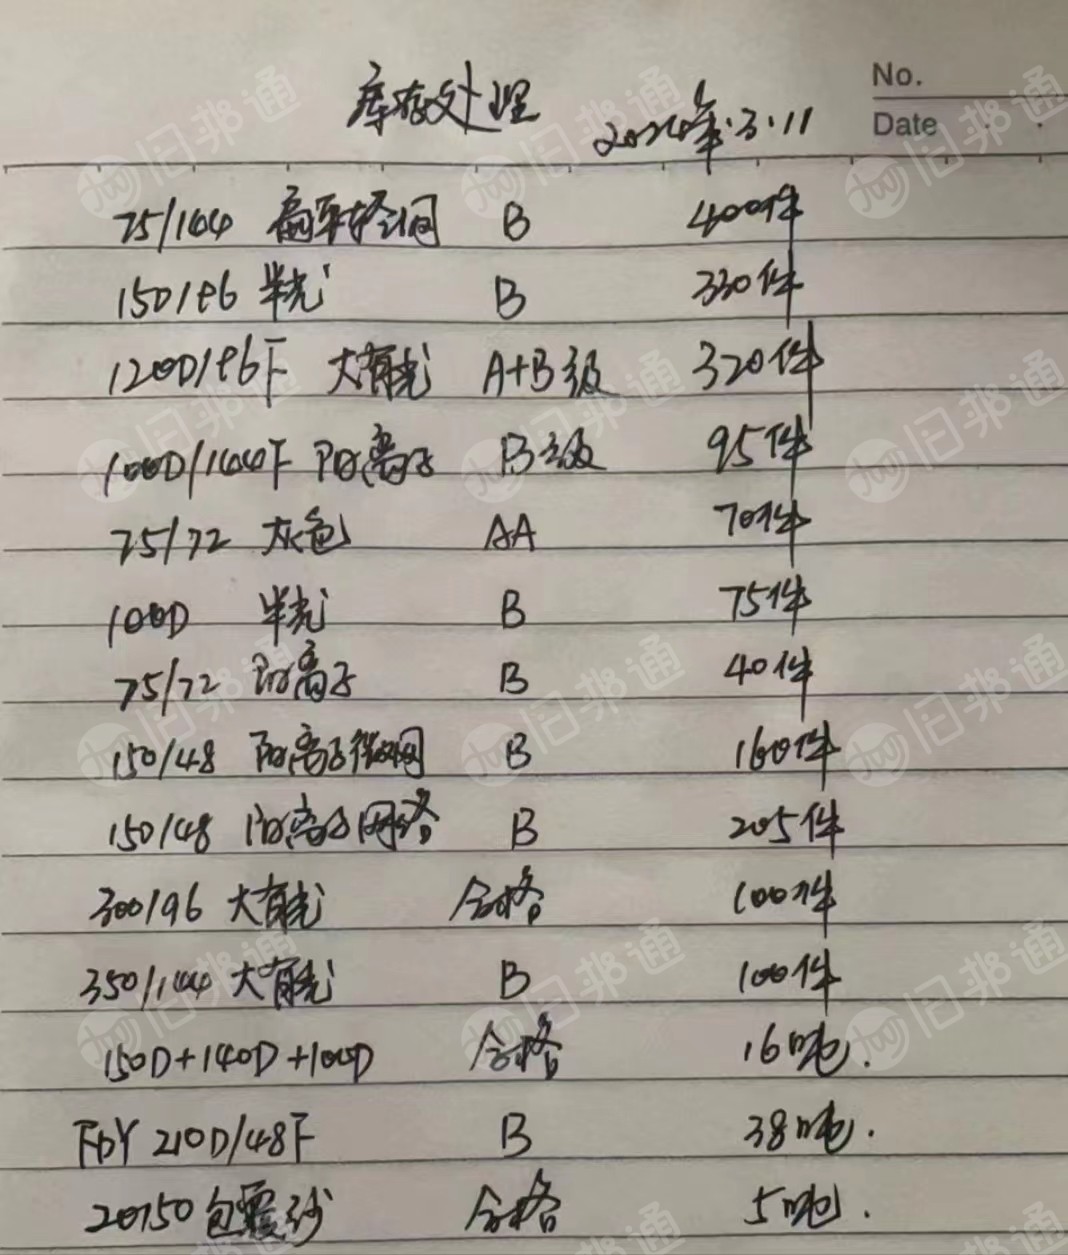 No.
库存处理 2024年.3.11
Date
75/144 扁平轻网 B 400件
150/96 半光 B 330件
1200D/96F 大有光 A+B级 320件
100D/144F 阳离子 B级 95件
75/72 灰色 AA 70件
100D 半光 B 75件
75/72 阳离子 B 40件
150/48 阳离子微网 B 160件
150/48 阳离子网络 B 205件
300/96 大有光 合格 100件
350/144 大有光 B 100件
150D+140D+100D 合格 16吨.
FDY 210D/48F B 38吨.
20150包覆纱 合格 5吨.
旧邦通